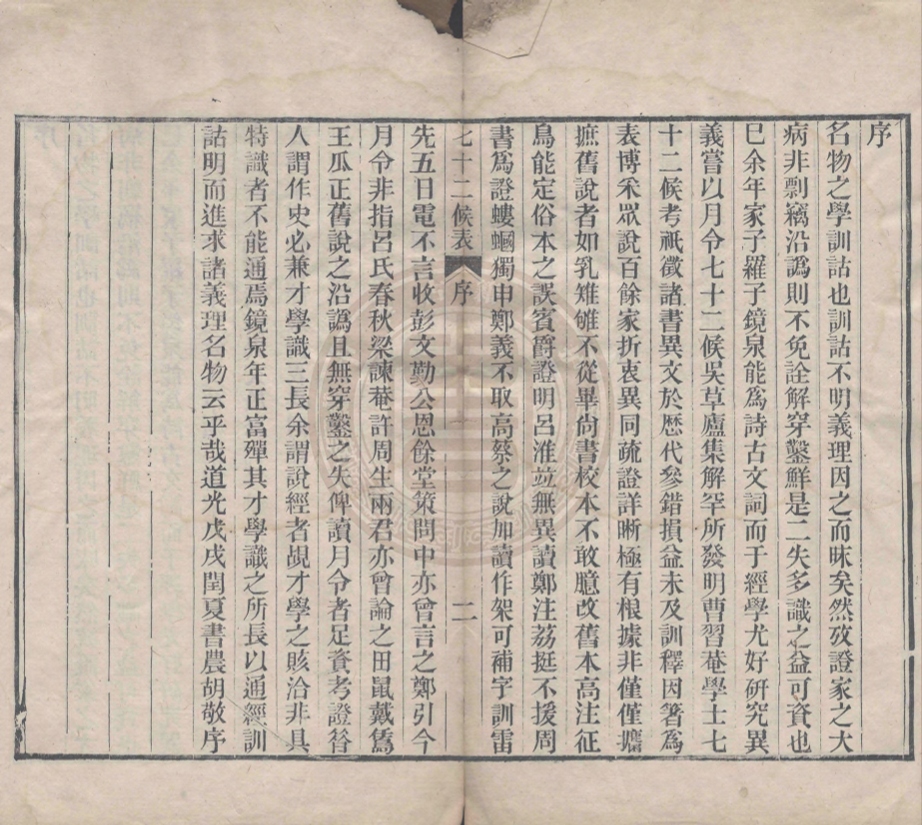 序
名物之學訓詁也訓詁不明義理因之而昧矣然攷證家之大
病非剽竊沿譌則不免詮解穿鑿鮮是二失多識之益可資也
已余年家子羅子鏡泉能爲詩古文詞而于經學尤好研究異
義嘗以月令七十二候吳草廬集解罕所發明曹習菴學士七
十二候考祇徵諸書異文於歷代參錯損益未及訓釋因箸爲
表博釆眾說百餘家折衷異同疏證詳晰極有根據非僅僅攟
摭舊說者如乳雉雊不從畢尚書校本不敢臆改舊本高注征
鳥能定俗本之誤賓爵證明呂淮竝無異讀鄭注荔挺不援周
書爲證螻蟈獨申鄭義不取高蔡之說加讀作架可補字訓雷
七十二候表 序 二
先五日電不言收彭文勤公恩餘堂策問中亦曾言之鄭引今
月令非指呂氏春秋梁諫菴許周生兩君亦曾論之田鼠戴爲
王瓜正舊說之沿譌且無穿鑿之失俾讀月令者足資考證昔
人謂作史必兼才學識三長余謂說經者覘才學之賅洽非具
特識者不能通焉鏡泉年正富殫其才學識之所長以通經訓
詁明而進求諸義理名物云乎哉道光戊戌閏夏書農胡敬序